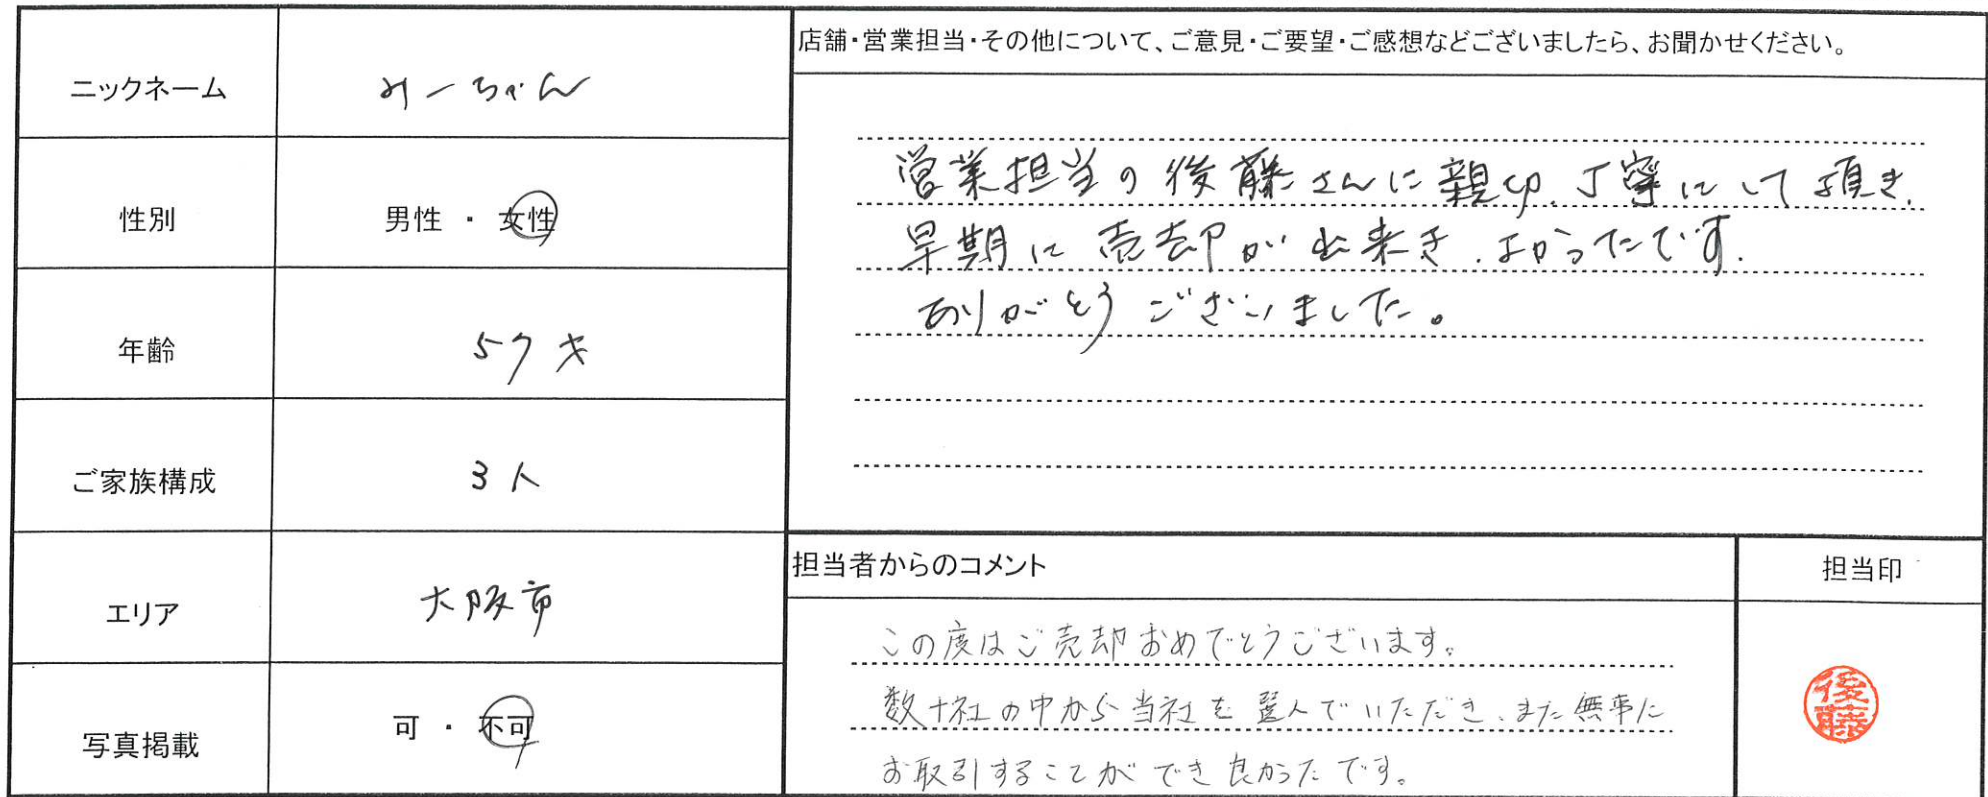 ニックネーム みーちゃん
性別 男性 ・ 女性
年齢 57才
ご家族構成 3人
エリア 大阪市
写真掲載 可 ・ 不可
店舗・営業担当・その他について、ご意見・ご要望・ご感想などございましたら、お聞かせください。
営業担当の後藤さんに親切、丁寧にして頂き、
早期に売却が出来き、よかったです。
ありがとうございました。
担当者からのコメント
この度はご売却おめでとうございます。
数十社の中から当社を選んでいただき、また無事に
お取引することができ良かったです。
担当印
後藤